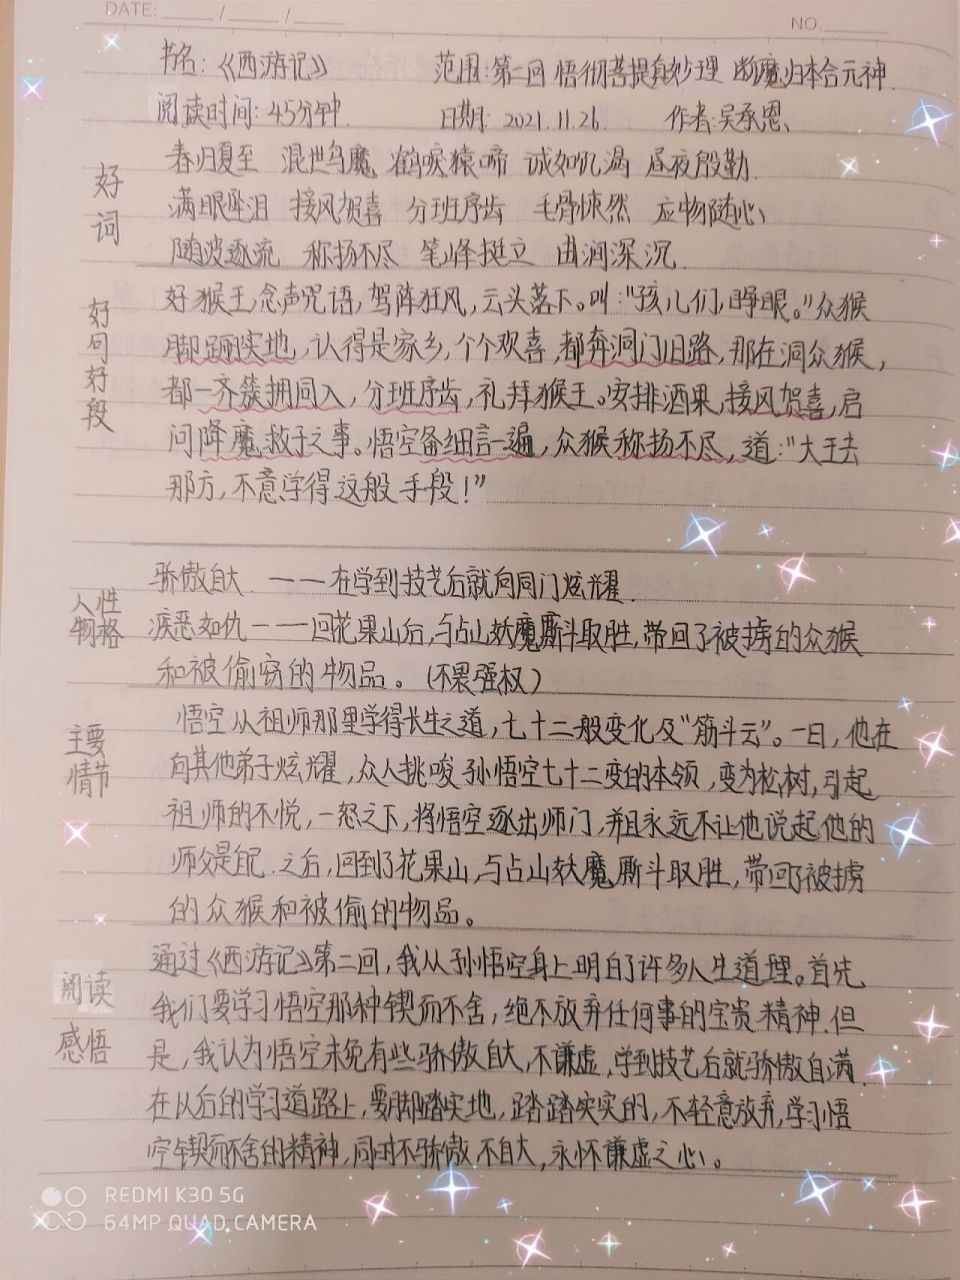 DATE: ____ / ____ / ____
NO. ____
书名:《西游记》 范围:第二回 悟彻菩提真妙理 断魔归本合元神
阅读时间:45分钟. 日期: 2021.11.26. 作者:吴承恩、
好词
春归夏至 混世鸟魔 鹤唳猿啼 诚如饥渴 昼夜殷勤.
满眼坠泪 接风贺喜 分班序齿 毛骨悚然 应物随心、
随波逐流 称扬不尽 笔峰挺立 曲涧深沉.
好句好段
好猴王,念声咒语,驾阵狂风,云头落下。叫:“孩儿们,睁眼。”众猴
脚踏实地,认得是家乡,个个欢喜,都奔洞门旧路,那在洞众猴,
都一齐簇拥同入,分班序齿,礼拜猴王。安排酒果,接风贺喜,启
问降魔救子之事。悟空备细言一遍,众猴称扬不尽,道:“大王去
那方,不意学得这般手段!”
人物性格
骄傲自大 ——在学到技艺后就向同门炫耀.
疾恶如仇 ——回花果山后,与占山妖魔厮斗取胜,带回了被掳的众猴
和被偷窃的物品。(不畏强权)
主要情节
悟空从祖师那里学得长生之道,七十二般变化及“筋斗云”。一日,他在
向其他弟子炫耀,众人挑唆孙悟空七十二变的本领,变为松树,引起
祖师的不悦,一怒之下,将悟空逐出师门,并且永远不让他说起他的
师父是自己.之后,回到了花果山,与占山妖魔厮斗取胜,带回了被掳
的众猴和被偷的物品。
阅读感悟
通过《西游记》第二回,我从孙悟空身上明白了许多人生道理。首先
我们要学习悟空那种锲而不舍,绝不放弃任何事的宝贵精神.但
是,我认为悟空未免有些骄傲自大,不谦虚,学到技艺后就骄傲自满.
在以后的学习道路上,要脚踏实地,踏踏实实的,不轻意放弃,学习悟
空锲而不舍的精神,同时不骄傲,不自大,永怀谦虚之心。
REDMI K30 5G
64MP QUAD CAMERA